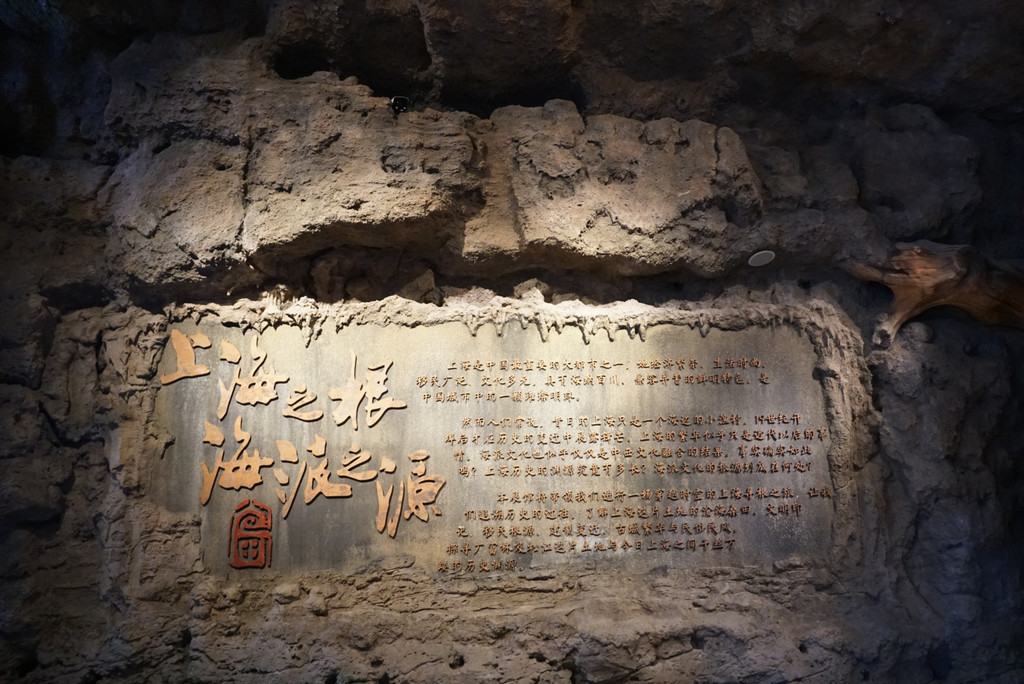 上海之根
海派之源
上海是中国最重要的大都市之一，地险源繁荣、生活时尚、
移民广泛、文化多元，具有海纳百川、兼容并蓄的鲜明特色，是
中国城市中的一颗璀璨明珠。
然而人们常说，昔日的上海只是一个海边的小渔村，19世纪开
埠后才在历史的变迁中展露锋芒，上海的繁华似乎只是近代以后的事
情，海派文化也似乎仅仅是中西文化融合的结果。事实确实如此
吗？上海历史的渊源究竟有多长？海派文化的根源到底在何处？
本展馆将带领我们进行一场穿越时空的上海寻根之旅，让我
们追溯历史的过往，了解上海这片土地的沧海桑田、文明印
记、移民根源、建制变迁、古城繁华与民俗民风，
探寻广富林及松江这片土地与今日上海之间千丝万
缕的历史渊源。